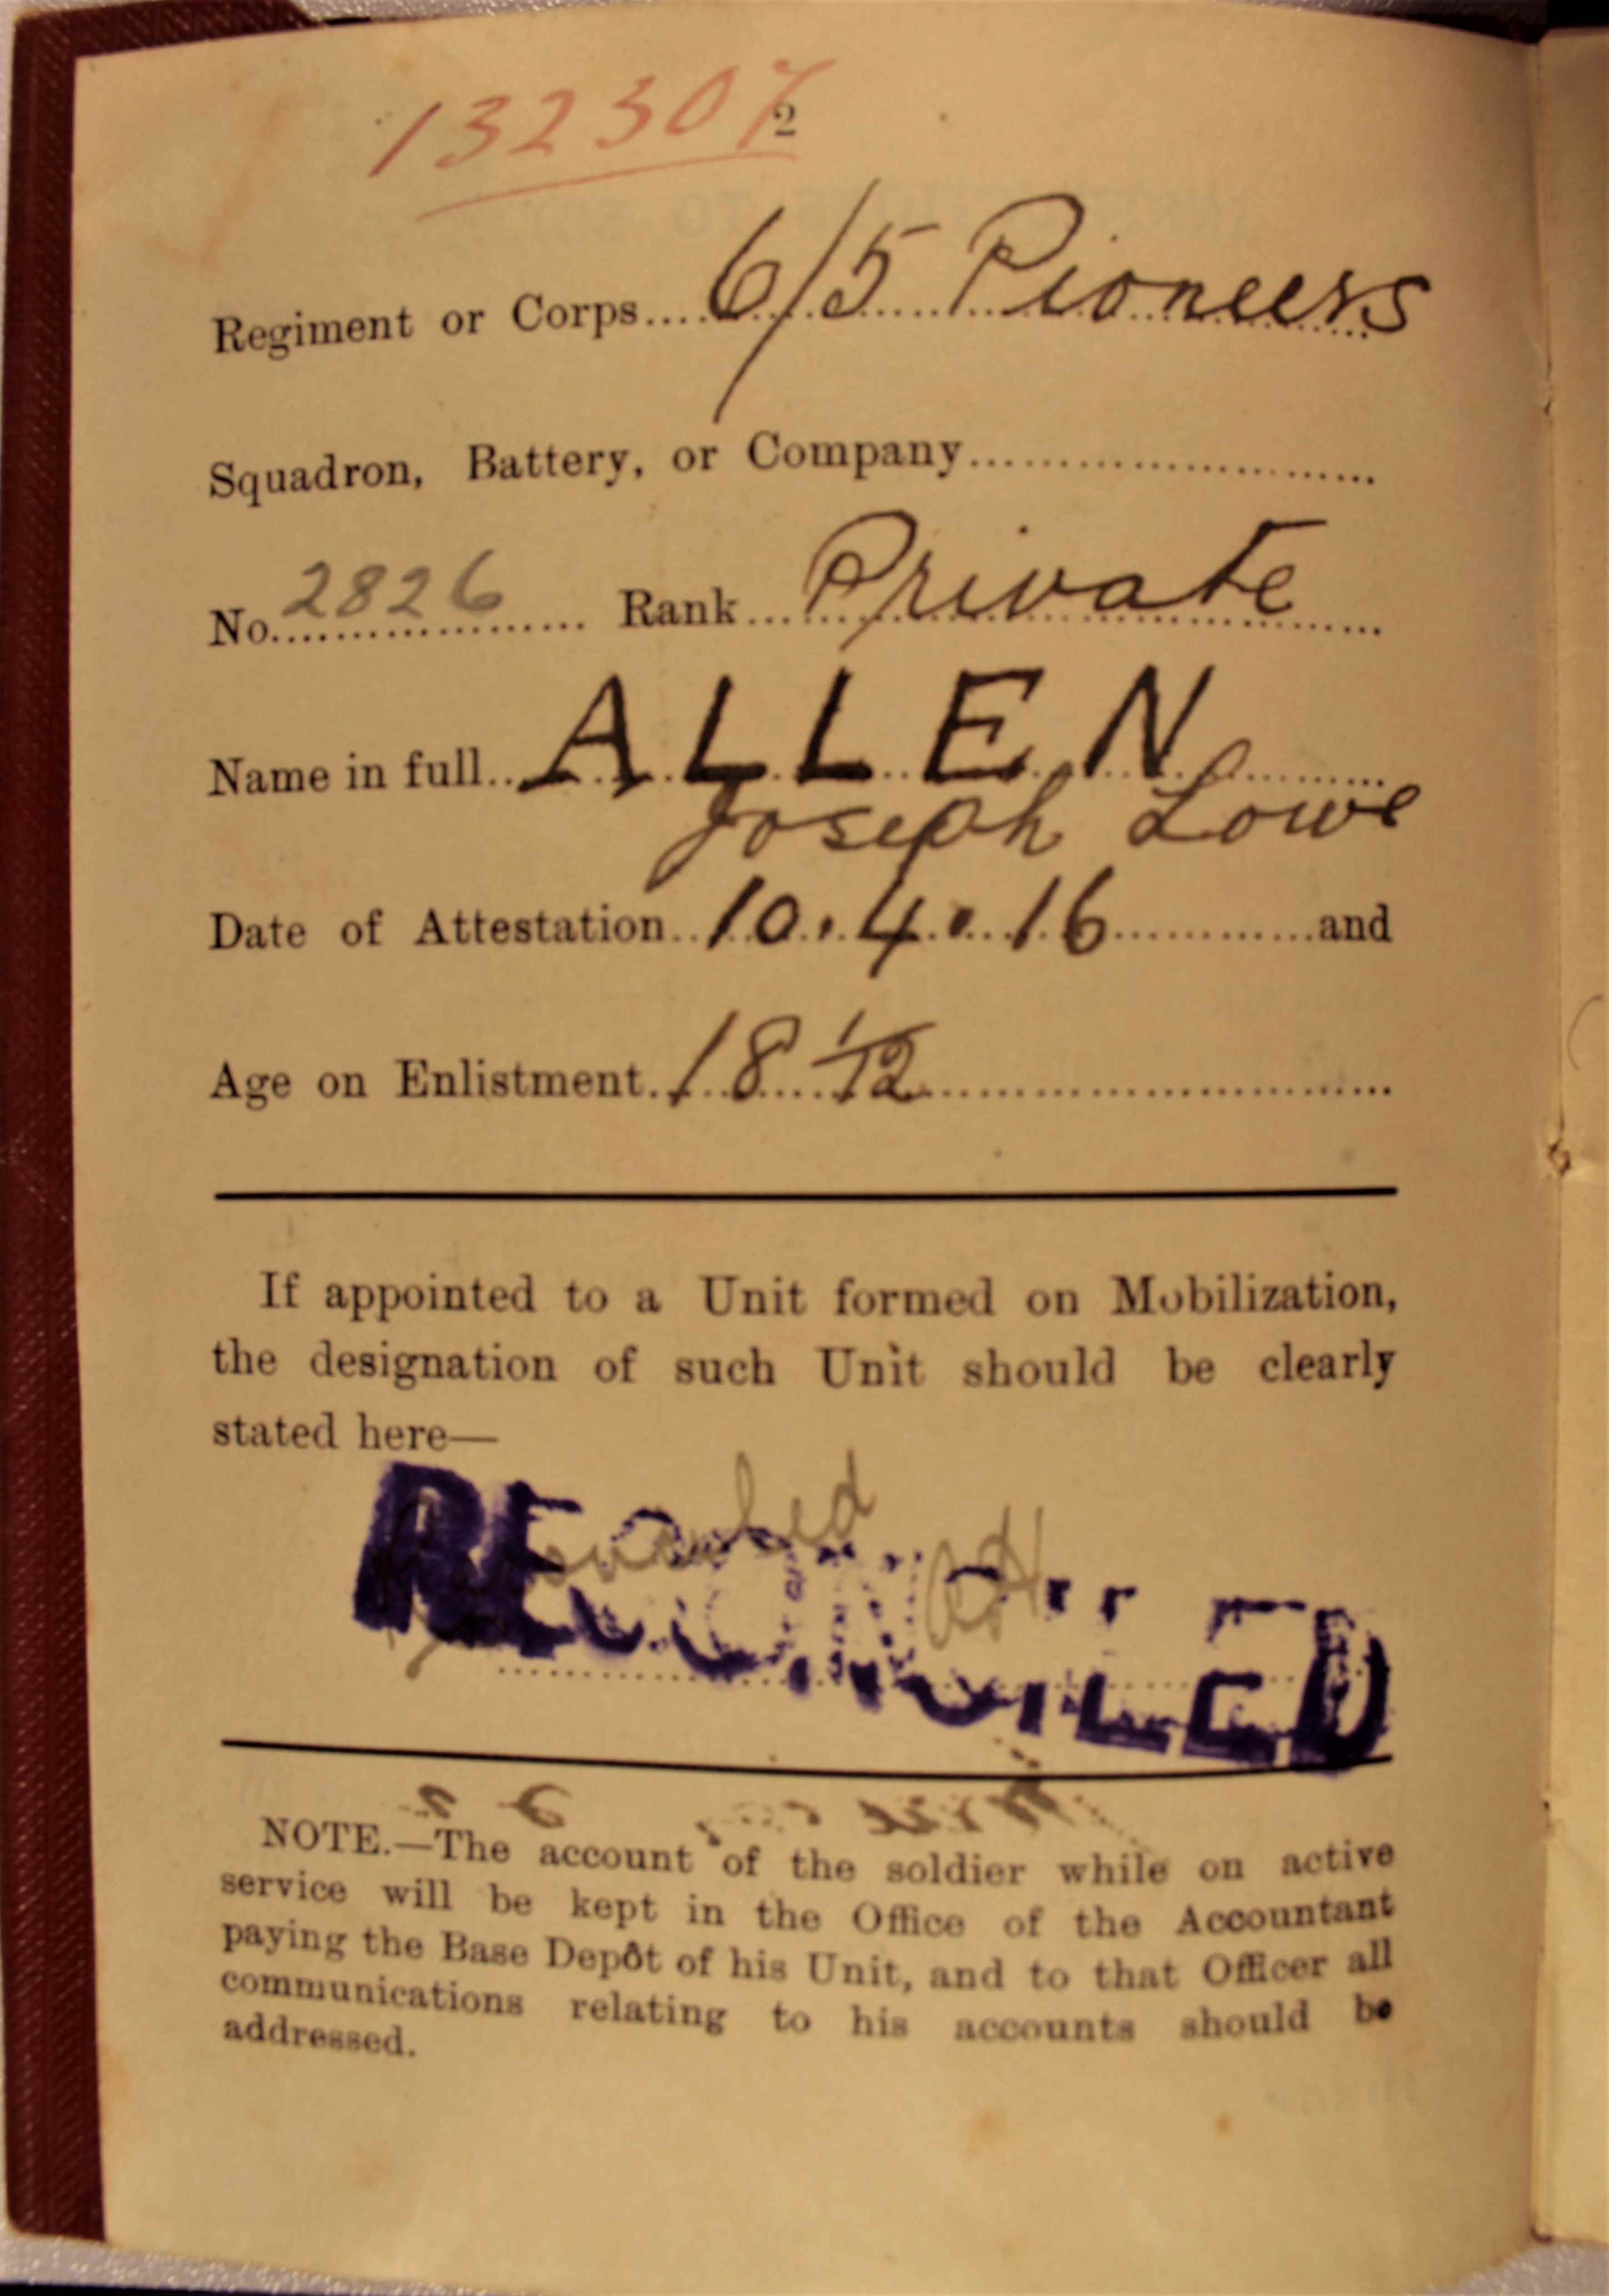 132307
2
Regiment or Corps....6/5 Pioneers
Squadron, Battery, or Company............................
No. 2826 ........ Rank... Private
Name in full... ALLEN
Joseph Lowe
Date of Attestation.. 10.4.16 ............and
Age on Enlistment. 18 1/12 ............................
If appointed to a Unit formed on Mobilization,
the designation of such Unit should be clearly
stated here—
RECONCILED
NOTE.—The account of the soldier while on active
service will be kept in the Office of the Accountant
paying the Base Depôt of his Unit, and to that Officer all
communications relating to his accounts should be
addressed.